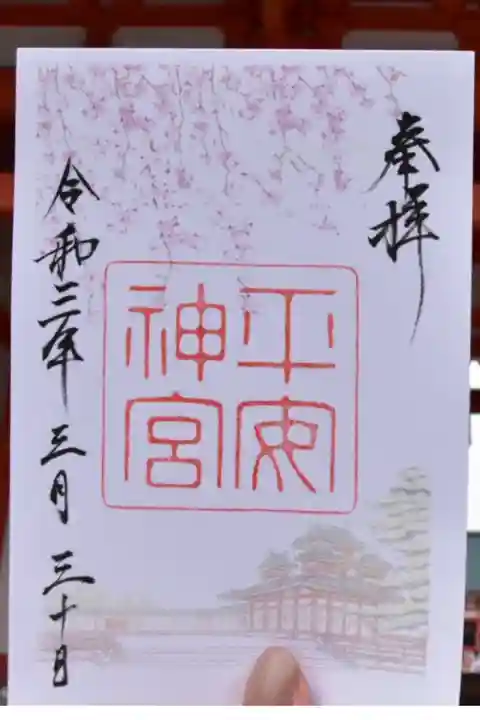 奉拝
平安
神宮
令和三年 三月 三十日